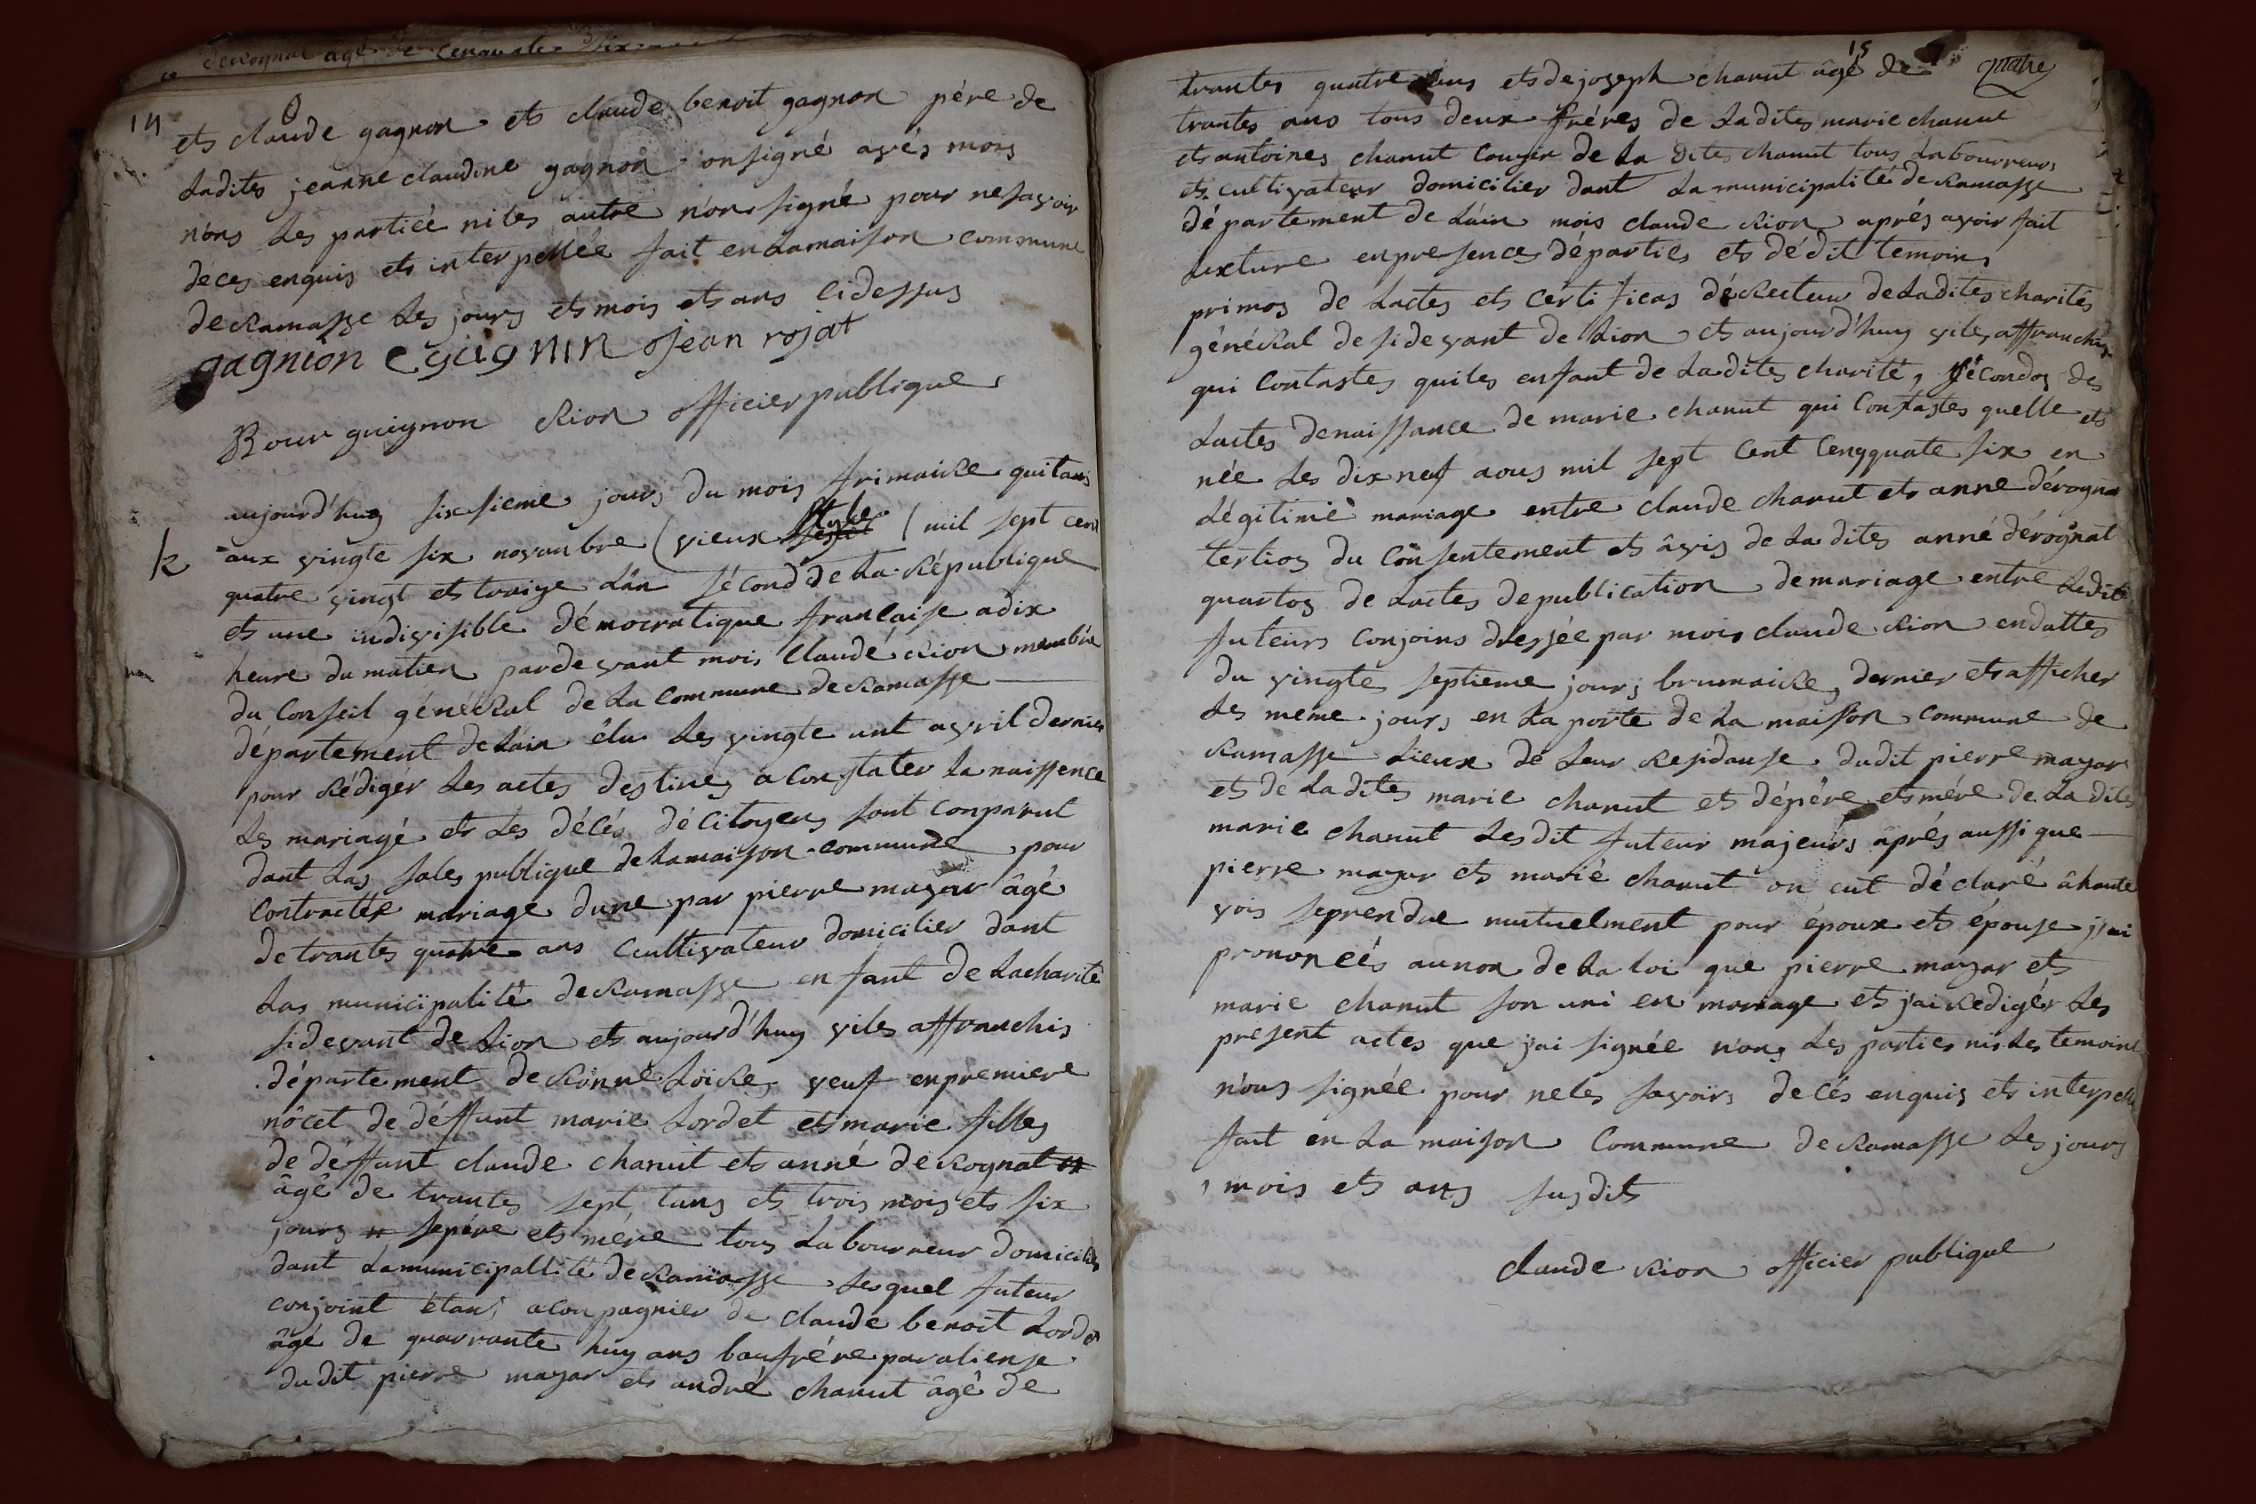 derognat agé de cenquate six
14
ets claude gagnon ets claude benoit gagnon pére de
Ladites jeanne claudine gagnon onsigné avés mois
n'ons Les partiée nites autre n'on signé pour nesavoir
deces enquis ets interpellée fait en Lamaison commune
de Ramasse Les jours ets mois ets ans cidessus
gagnion C gagnin Jean rojat
Bourguignon Rion officier publique
aujourd'huy sixsieme jours du mois frimaire quitans
aux vingte six novanbre (vieux style ( mil sept cent
k
quatre vingt ets traize L'an sécond de La République
ets une indivisible démocratique francaise adix
heure du matien pardevant mois Claudé Rion membre
du Conseil généRal de La Commune de Ramasse
département de Láin élu Les vingte unt avril dernier
pour Rédigér Les actes destines a Constater la naissence
Les mariagé ets Les décés dé Citoyens sont Conparut
dant Las sales publique de Lamaison commune pour
Contracter mariage dune par pierre mayar âgé
de trantes quatre ans Cultivateur domicilier dant
Las municipalité de Ramasse enfant de Lacharité
sidevant de Lion ets aujourd'huy viles affranchis
département de Rônne Loire veuf enpremiere
nôcet de déffunt marie Lordet ets marie filles
de déffunt claude chanut ets anné de Rognat
âgé de trantes sept tans ets trois mois ets six
jours sepére ets mére tous Labourreur domicilies
dant Lamunicipallité de Ramasse Lesquel futeur
conjoint étans aConpagnier de claude benoit Lordet
âgé de quarrante huy ans baufrére paraliense
dudit pierre mayar ets andré chanut âgé de
15 quatre
trantes quatre ans ets de joseph chanut âgé de
trantes ans tous deux fréres de Ladites marie chanut
ets antoines chanut Cougin de La dites chanut tous Labourreurs
ets Cultivateur domicilier dant Lamunicipalité de Ramasse
département de Láin mois claude Rion aprés avoir fait
Lexture enpresences départies ets dédit temoins
primos de Lactes ets Certificas déRecteur de Ladites charités
généRal de sidevant de Lion ets aujourd'huy viles affranchis
qui Contastes quiles enfant de Ladites charité, sécondos des
Lactes denaissance de marie chanut qui Contastes quelle ets
née Les dix neuf aous mil sept Cent Cenqquate six en
Légitimé mariage entre claude chanut ets anne dérognat
tertios du Consentement ets âvis de La dites anné dérognat
quartos de Lactes depublication demariage entre Ledit
futeurs Conjoins dressée par mois claude Rion endattes
du vingte septieme jours brumaire, dernier ets afficher
Les meme jours en La porte de La maison Commune de
Ramasse Lieux de Leur Residanse dudit pierre mayar
ets de Ladites marie chanut ets dépére ets mére de La dites
marie chanut Les dit futeur majeurs âprés aussi que
pierre mayar ets marié chanut on eut déclaré âhaute
vois seprendre mutuelment pour époux ets épouse j'ai
prononcés aunon de La loi que pierre mayar ets
marie chanut son uni en mariage ets j'ai Redigér Les
present actes que j'ai signée n'ons Les parties nis Les temoins
n'ous signée pour neles savoirs de Cés enquis ets interpelle
fait en La maison Commune de Ramasse Les jours
mois ets ans susdits
claude Rion officier publique